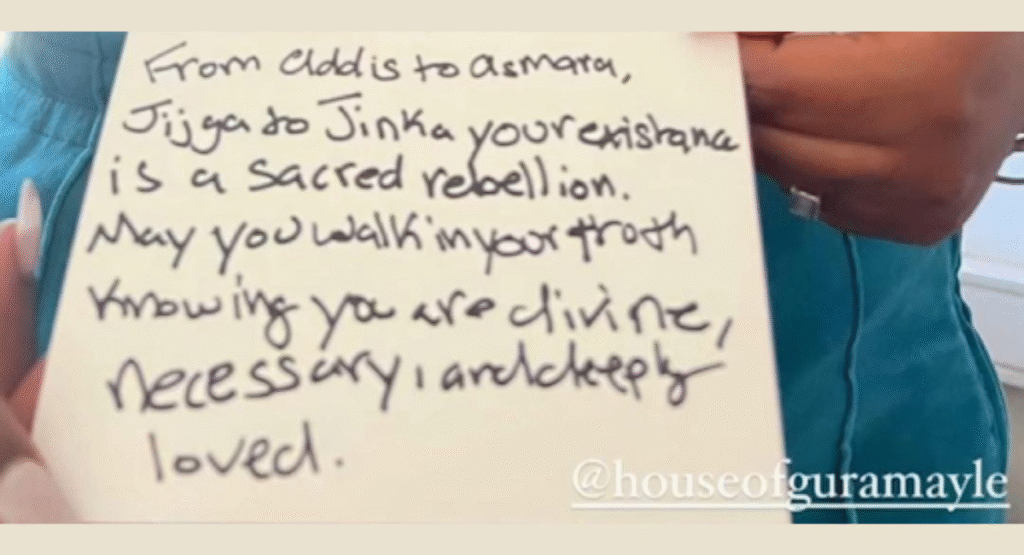 From Addis to asmara,
Jijga to Jinka your existance
is a sacred rebellion.
May you walk in your truth
knowing you are divine,
necessary, and deeply
loved.
@houseofguramayle